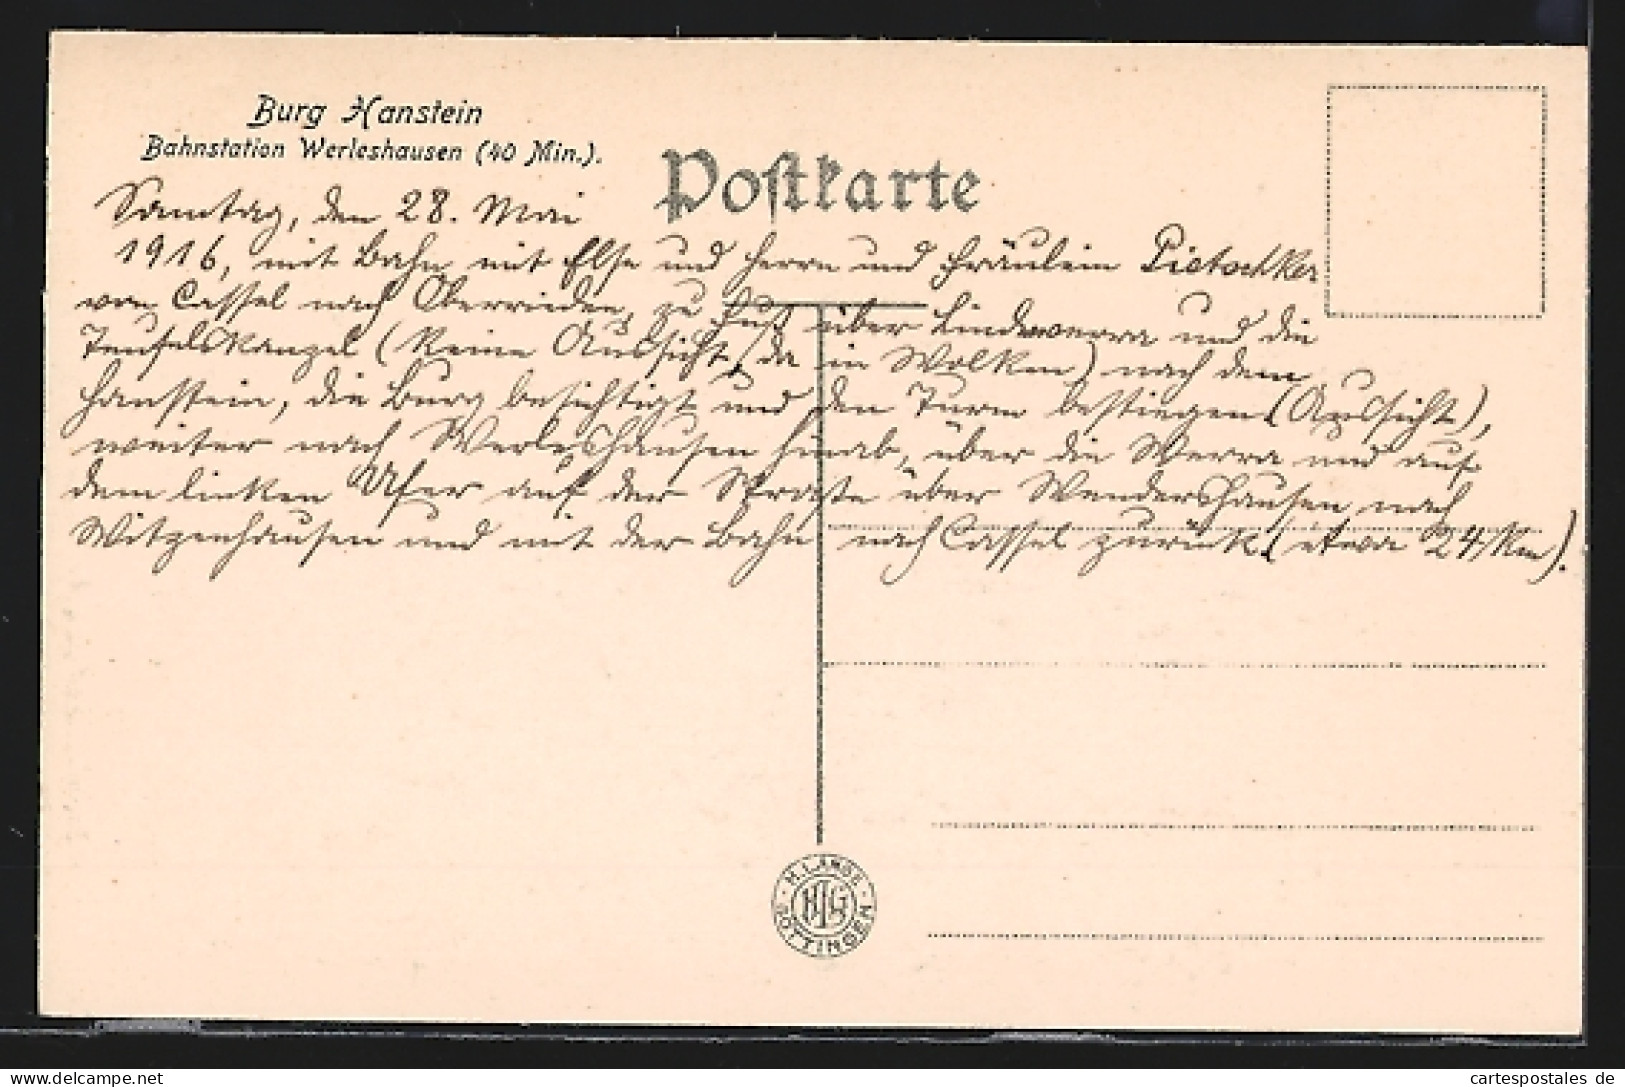 Burg Hanstein
Bahnstation Werleshausen (40 Min.).
Postkarte
Sonntag, den 28. Mai
1916, mit Bahn mit Else und Herrn und Fräulein Pietschker
von Cassel nach Oberrieden, zu Fuß über Lindewerra und die
Teufelskanzel (keine Aussicht, da in Wolken) nach dem
Hanstein, die Burg besichtigt und den Turm bestiegen (Aussicht),
weiter nach Werleshausen hinab, über die Werra und auf
dem linken Ufer auf der Straße über Wendershausen nach
Witzenhausen und mit der Bahn nach Cassel zurück (etwa 24 km).
H. LANGE
HLG
GÖTTINGEN
www.cartespostales.eu
cartespostales de